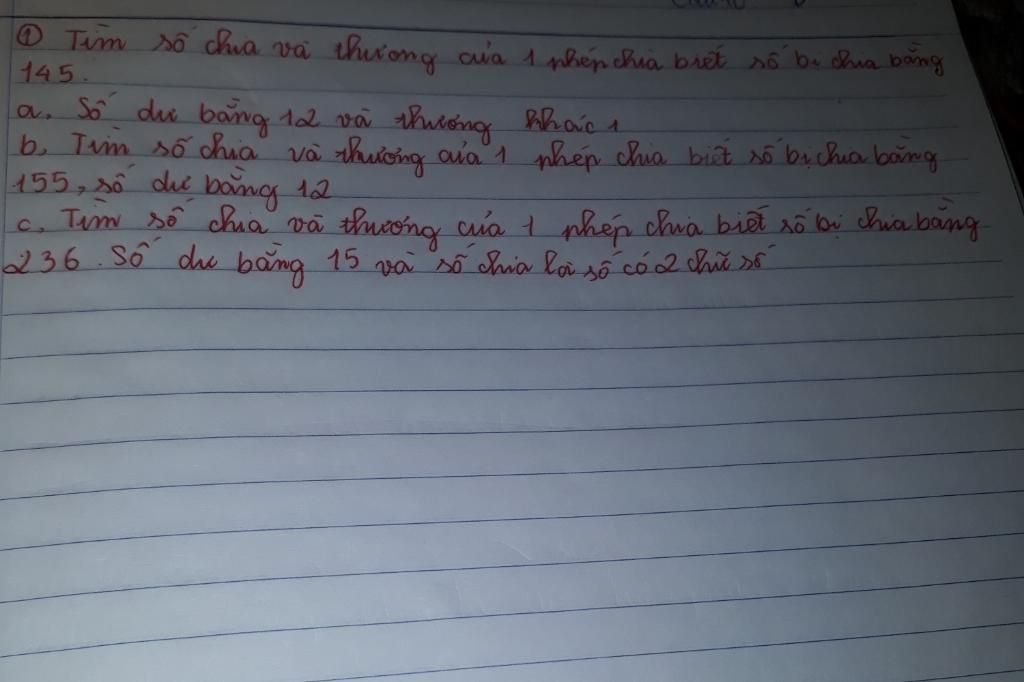 ① Tìm số chia và thương của 1 phép chia biết số bị chia bằng
145.
a, Số dư bằng 12 và thương khác 1
b, Tìm số chia và thương của 1 phép chia biết số bị chia bằng
155, số dư bằng 12
c, Tìm số chia và thương của 1 phép chia biết số bị chia bằng
236. Số dư bằng 15 và số chia là số có 2 chữ số